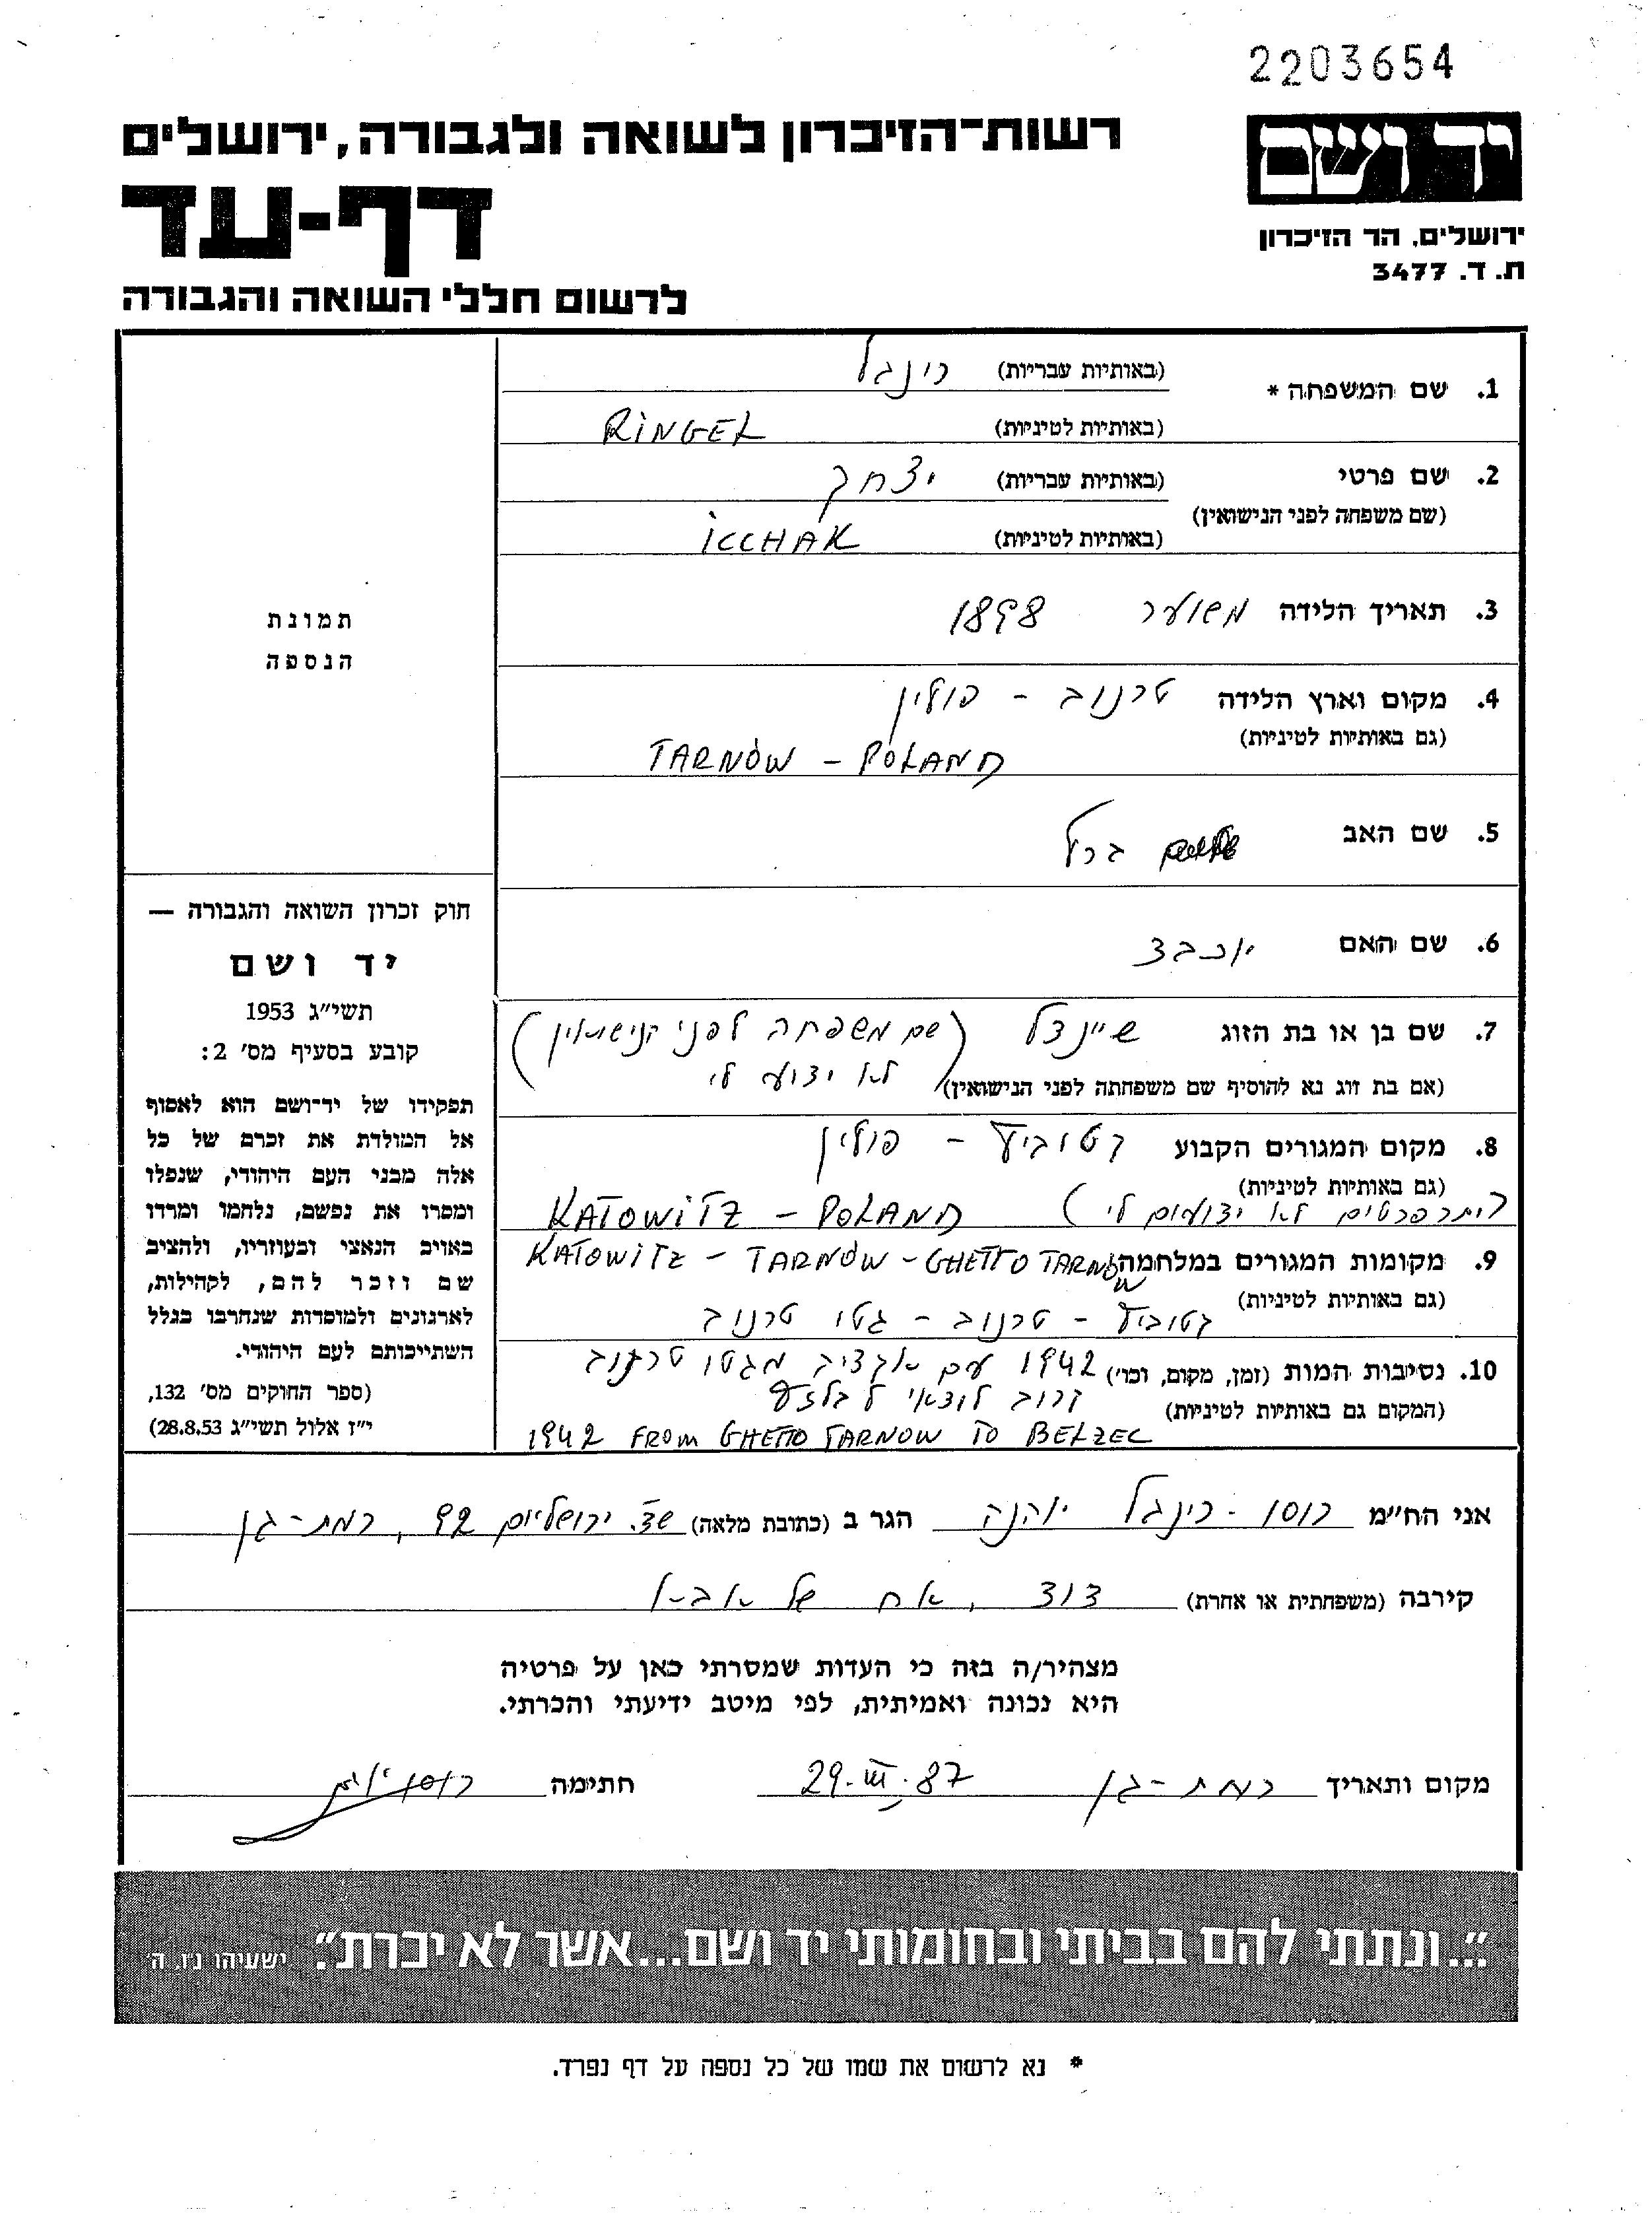 2203654
יד ושם
ירושלים, הר הזיכרון
ת. ד. 3477
רשות־הזיכרון לשואה ולגבורה, ירושלים
דף-עד
לרשום חללי השואה והגבורה
1. שם המשפחה * (באותיות עבריות) רינגל
(באותיות לטיניות) RINGEL
2. שם פרטי (באותיות עבריות) יצחק
(שם משפחה לפני הנישואין)
(באותיות לטיניות) ICCHAK
3. תאריך הלידה משוער 1898
4. מקום וארץ הלידה טרנוב - פולין
(גם באותיות לטיניות)
TARNÓW - POLAND
5. שם האב ברל
6. שם האם יוכבד
7. שם בן או בת הזוג שיינדל (שם משפחה לפני הנישואין
(אם בת זוג נא להוסיף שם משפחתה לפני הנישואין) לא ידוע לי)
8. מקום המגורים הקבוע קטוביץ - פולין
(גם באותיות לטיניות)
KATOWITZ - POLAND (יתר פרטים לא ידועים לי)
9. מקומות המגורים במלחמה KATOWITZ - TARNÓW - GHETTO TARNÓW
(גם באותיות לטיניות)
קטוביץ - טרנוב - גטו טרנוב
10. נסיבות המות (זמן, מקום, וכו׳) 1942 עם אקציה מגטו טרנוב
(המקום גם באותיות לטיניות) קרוב לודאי לבלזץ
1942 FROM GHETTO TARNOW TO BELZEC
תמונת
הנספה
חוק זכרון השואה והגבורה —
יד ושם
תשי״ג 1953
קובע בסעיף מס׳ 2:
תפקידו של יד־ושם הוא לאסוף
אל המולדת את זכרם של כל
אלה מבני העם היהודי, שנפלו
ומסרו את נפשם, נלחמו ומרדו
באויב הנאצי ובעוזריו, ולהציב
שם וזכר להם, לקהילות,
לארגונים ולמוסדות שנחרבו בגלל
השתייכותם לעם היהודי.
(ספר החוקים מס׳ 132,
י״ז אלול תשי״ג 28.8.53)
אני הח״מ רוסו - רינגל יוהנה הגר ב (כתובת מלאה) שד. ירושלים 92, רמת-גן
קירבה (משפחתית או אחרת) דוד, אח של אבא
מצהיר/ה בזה כי העדות שמסרתי כאן על פרטיה
היא נכונה ואמיתית, לפי מיטב ידיעתי והכרתי.
מקום ותאריך רמת-גן 29.III.87 חתימה
״...ונתתי להם בביתי ובחומותי יד ושם...אשר לא יכרת״. ישעיהו נ״ו. ה׳
* נא לרשום את שמו של כל נספה על דף נפרד.